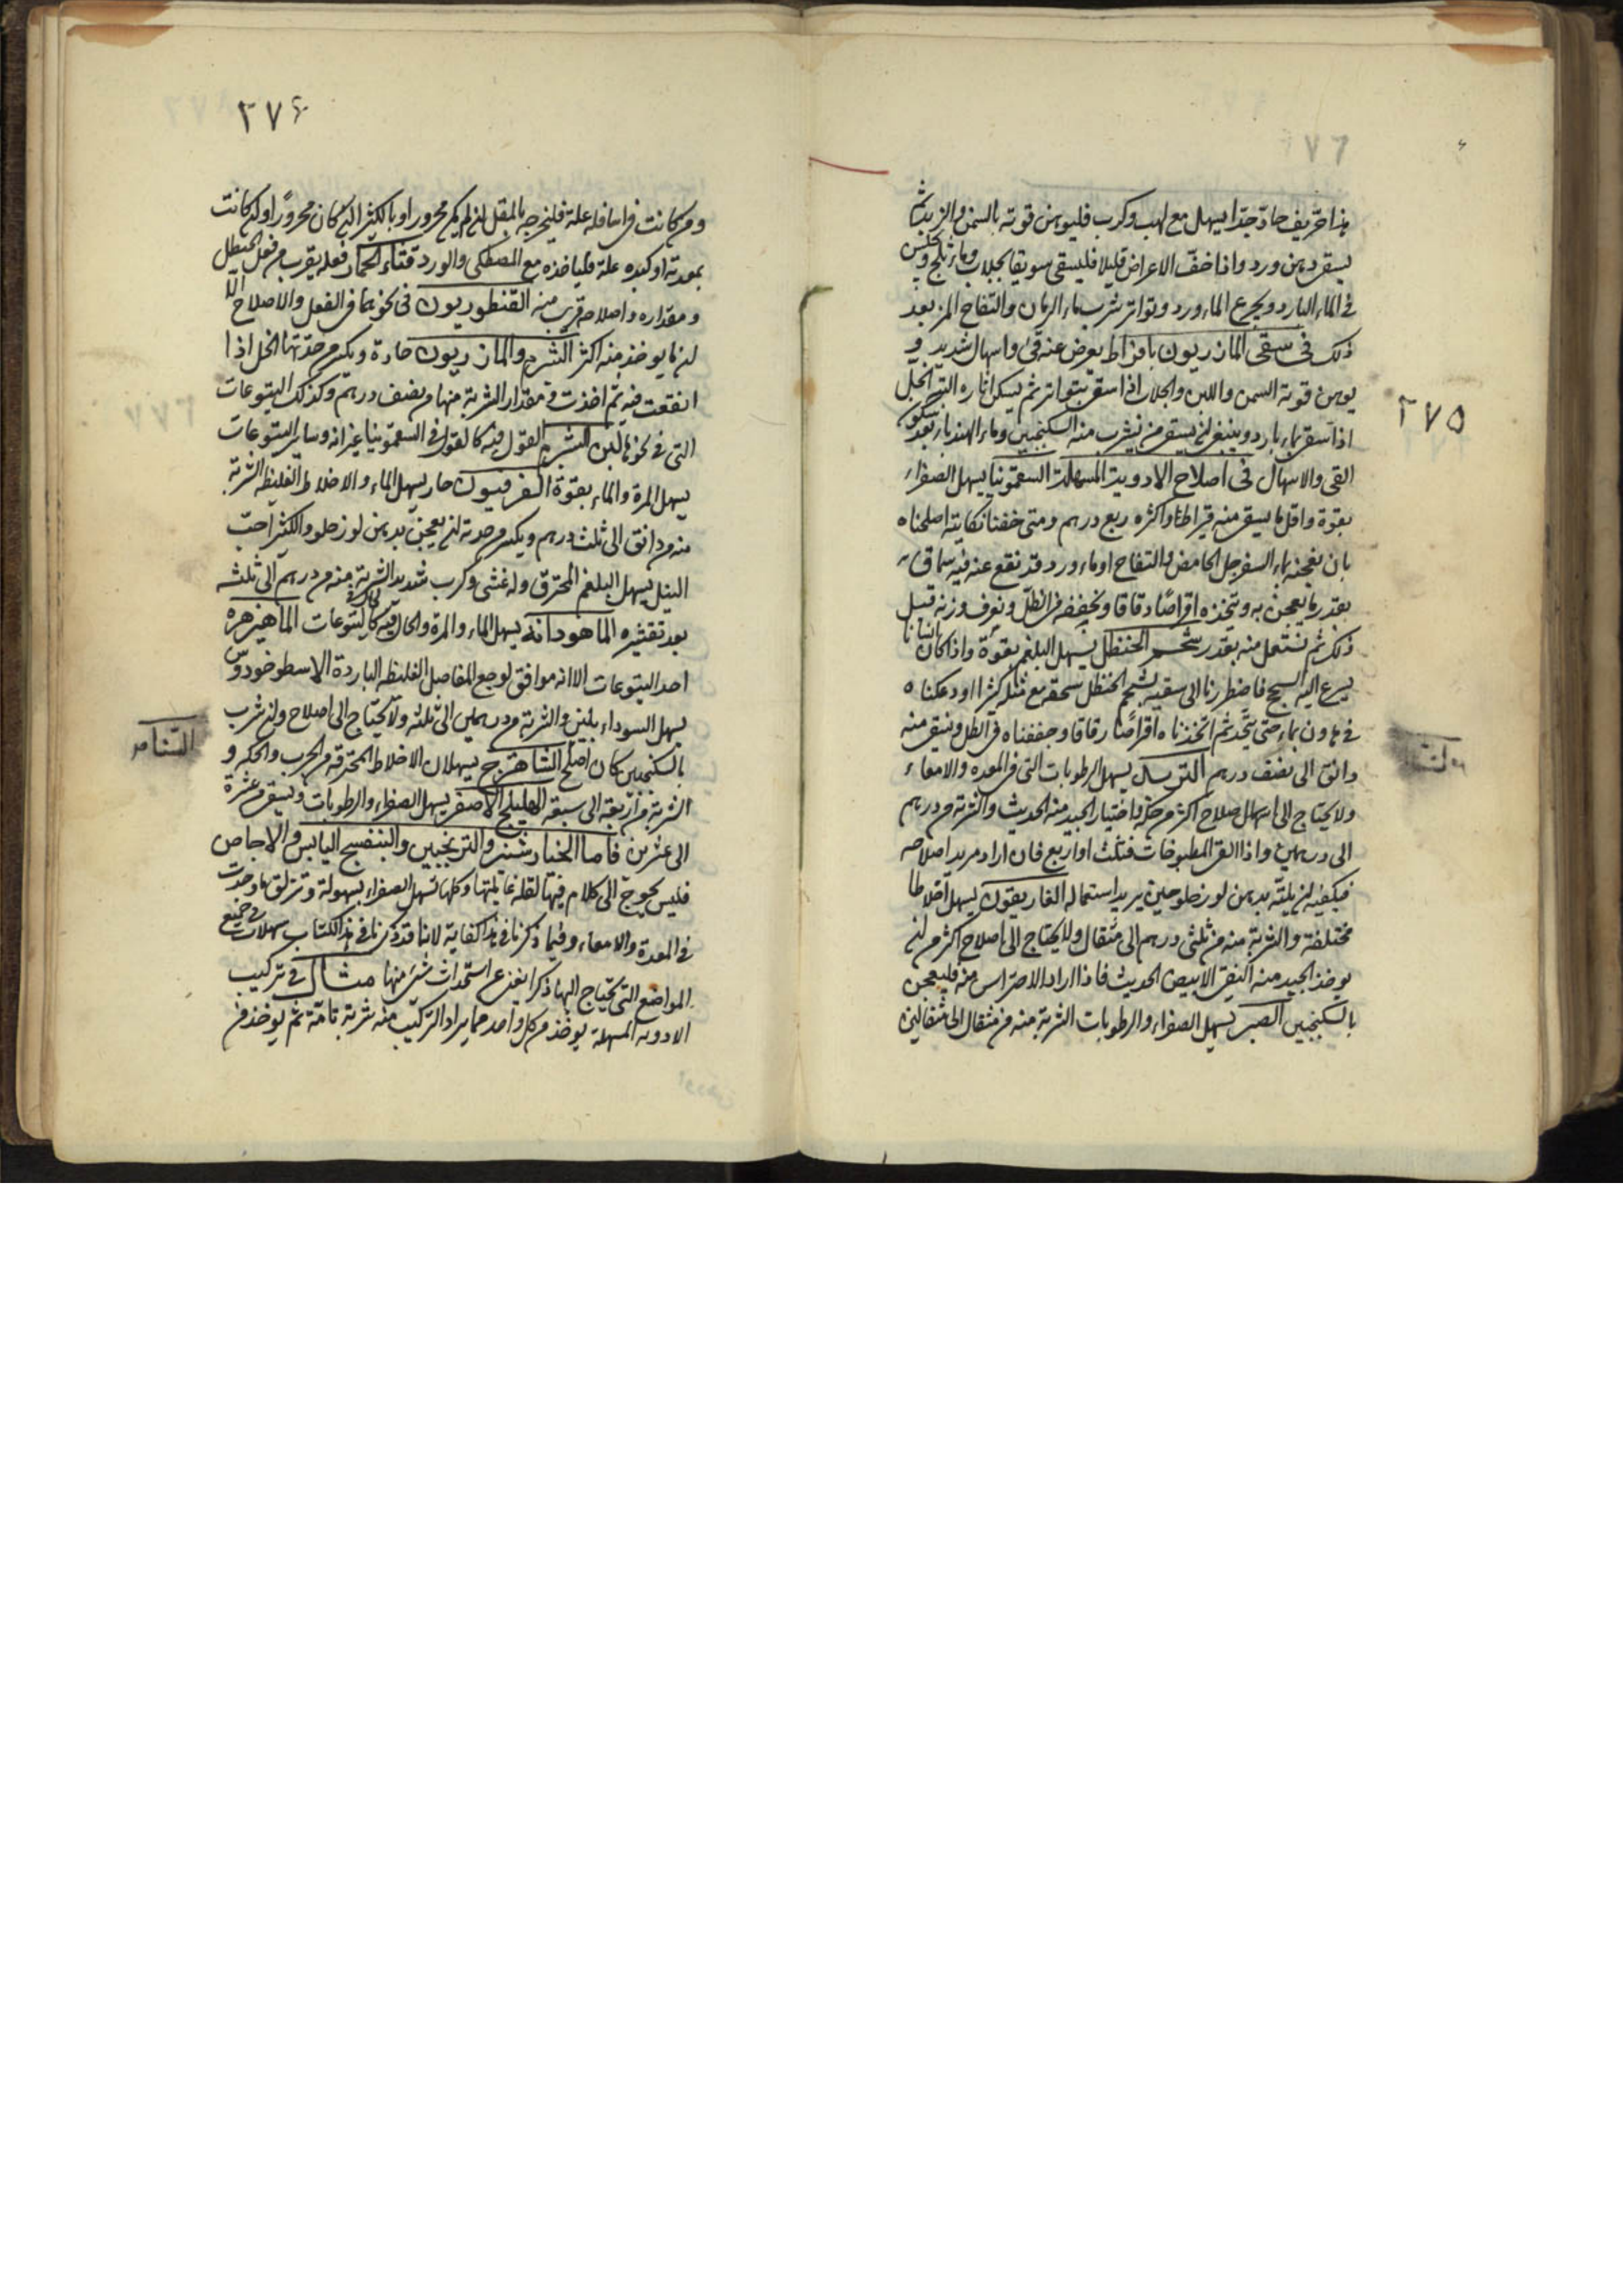 ٢٧٥
هذا حريف حاد جدا يسهل مع لهب وكرب فليوهن قوته بالسمن والزبد ثم
يسقى دهن ورد واذا خف الاعراض قليلا فليسقى سويقا بجلاب وماء ثلج ويجلس
فى الماء البارد ويجرع الماء ورد ويواتر شرب ماء الرمان والتفاح المز بعد
ذلك فى سقى المازريون بافراط يعرض عنه قئ واسهال شديد و
يوهن قوته السمن واللبن والجلاب اذا سقى بتواتر ثم يسكن اثاره التى
اذا سقى بماء بارد وينبغى ان يسقى من يشرب منه السكنجبين وماء الهندباء بعد سكون
القئ والاسهال فى اصلاح الادوية المسهلة السقمونيا يسهل الصفراء
بقوة واقل ما يسقى منه قيراطا واكثره ربع درهم ومتى خفنا نكايته اصلحناه
بان نعجنه بماء السفرجل الحامض والتفاح او ماء ورد قد نقع عنه فيه سماق
بقدر ما يعجن به ونتخذه اقراصا دقاقا ونجففه فى الظل ونعرف وزنه قبل
ذلك ثم نستعمل منه بقدر شحم الحنظل يسهل البلغم بقوة واذا كان انسانا
يسرع اليه السحج فاضطررنا الى سقيه شحم الحنظل سحق مع مثله كثيرا ودعكناه
فى هاون بماء حتى يتحد ثم اتخذناه اقراصا رقاقا وجففناه فى الظل ونسقى منه
دانق الى نصف درهم التربد يسهل الرطوبات التى فى المعده والامعاء
ولا يحتاج الى اصلاح اكثر من حكه واختيار الجيد منه الحديث والشربة من درهم
الى درهمين واذا القى المطبوخات فثلث او اربع فان اراد مريد اصلاحه
فيكفيه ان يلته بدهن لوز حلو حين يريد استعماله الغاريقون يسهل اخلاطا
مختلفة والشربة منه من ثلثى درهم الى مثقال ولا يحتاج الى اصلاح اكثر من ان
يوخذ الجيد منه النقى الابيض الحديث فاذا اراد الاحتراس منه فليعجن
بالسكنجبين الصبر يسهل الصفراء والرطوبات الشربة منه من مثقال الى مثقالين
٢٧٤
ومن كانت فى اسافله علة فليخرجه بالمقل ان لم يكن محرورا او بالكثيرا ان كان محرورا وان كانت
بمعدته او كبده علة فلياخذه مع المصطكى والورد قثاء الحمار فعله يقرب من فعل الحنظل
ومقداره واصلاحه قريب منه القنطوريون فى نحو هما فى الفعل والاصلاح الا
ان ما يوخذ منه اكثر الشبرم والمازريون حادة ويكسر من حدتها الخل اذا
انقعت فيه ثم اخذت ومقدار الشربة منها من نصف درهم وكذلك اليتوعات
التى فى نحوها لبن الشبرم القول فيه كالقول فى السقمونيا غير انه وساير اليتوعات
يسهل المرة والماء بقوة الفرفيون حار يسهل الماء والاخلاط الغليظه الشربة
منه من دانق الى ثلث درهم ويكسر من حدته ان يعجن بدهن لوز حلو والكثيرا حب
النيل يسهل البلغم المحترق وله غثى وكرب شديد الشربة منه من درهم الى ثلثه
بعد تقشيره الماهودانه يسهل الماء والمرة والحال فيه كالحال فى اليتوعات الماهيزهره
احد اليتوعات الا انه موافق لوجع المفاصل الغليظه الباردة الاسطوخودوس
يسهل السوداء بلين والشربة من درهمين الى ثلثه ولا يحتاج الى اصلاح وان شرب
بالسكنجبين كان اصلح الشاهترج يسهلان الاخلاط المحترقه من الجرب والحكه و
الشربة من اربعة الى سبعة الهليلج الاصفر يسهل الصفراء والرطوبات ويسقى من عشرة
الى عشرين فاما الخيارشنبر والترنجبين والبنفسج اليابس والاجاص
فليس يحوج الى كلام فيها لقلة غايلتها وكلها تسهل الصفراء بسهولة وتزلق ما وجدت
فى المعدة والامعاء وفيما ذكرنا فى هذا كفاية لاننا قد ذكرنا فى هذا الكتاب مسهلات فى جميع
المواضع التى تحتاج اليها ذكرا يغنى عن استحداث شئ منها مثال فى تركيب
الادويه المسهلة يوخذ من كل واحد مما يراد التركيب منه شربة تامة ثم يوخذ من